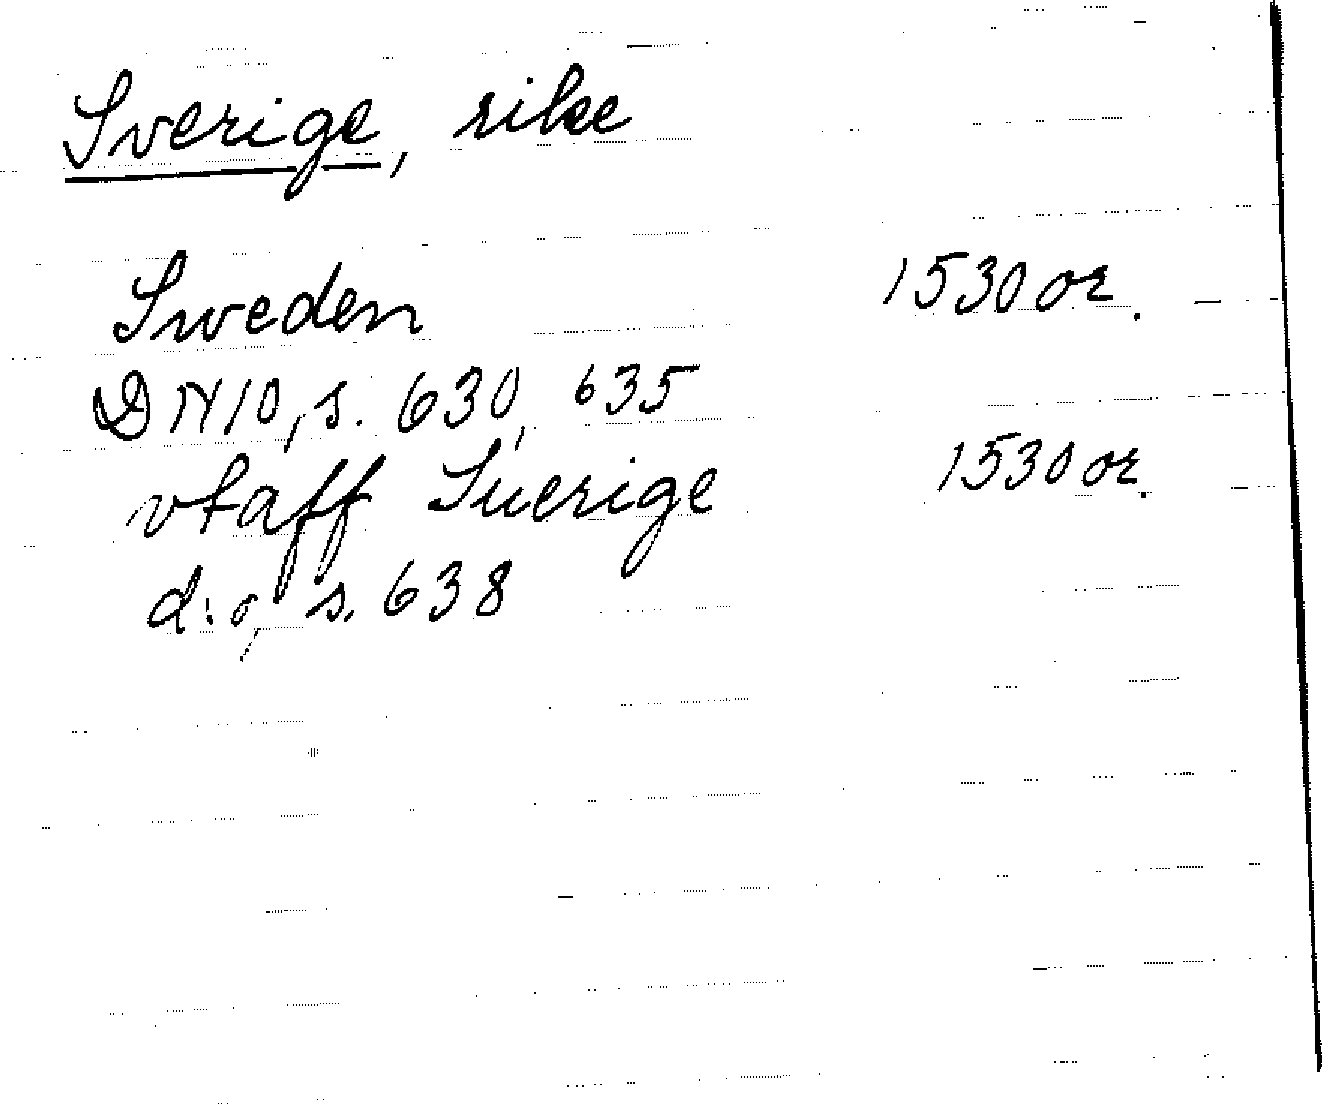 Sverige, rike
Sweden 1530 or.
DN 10, s. 630, 635
vtaff Suerige 1530 or.
d:o, s. 638